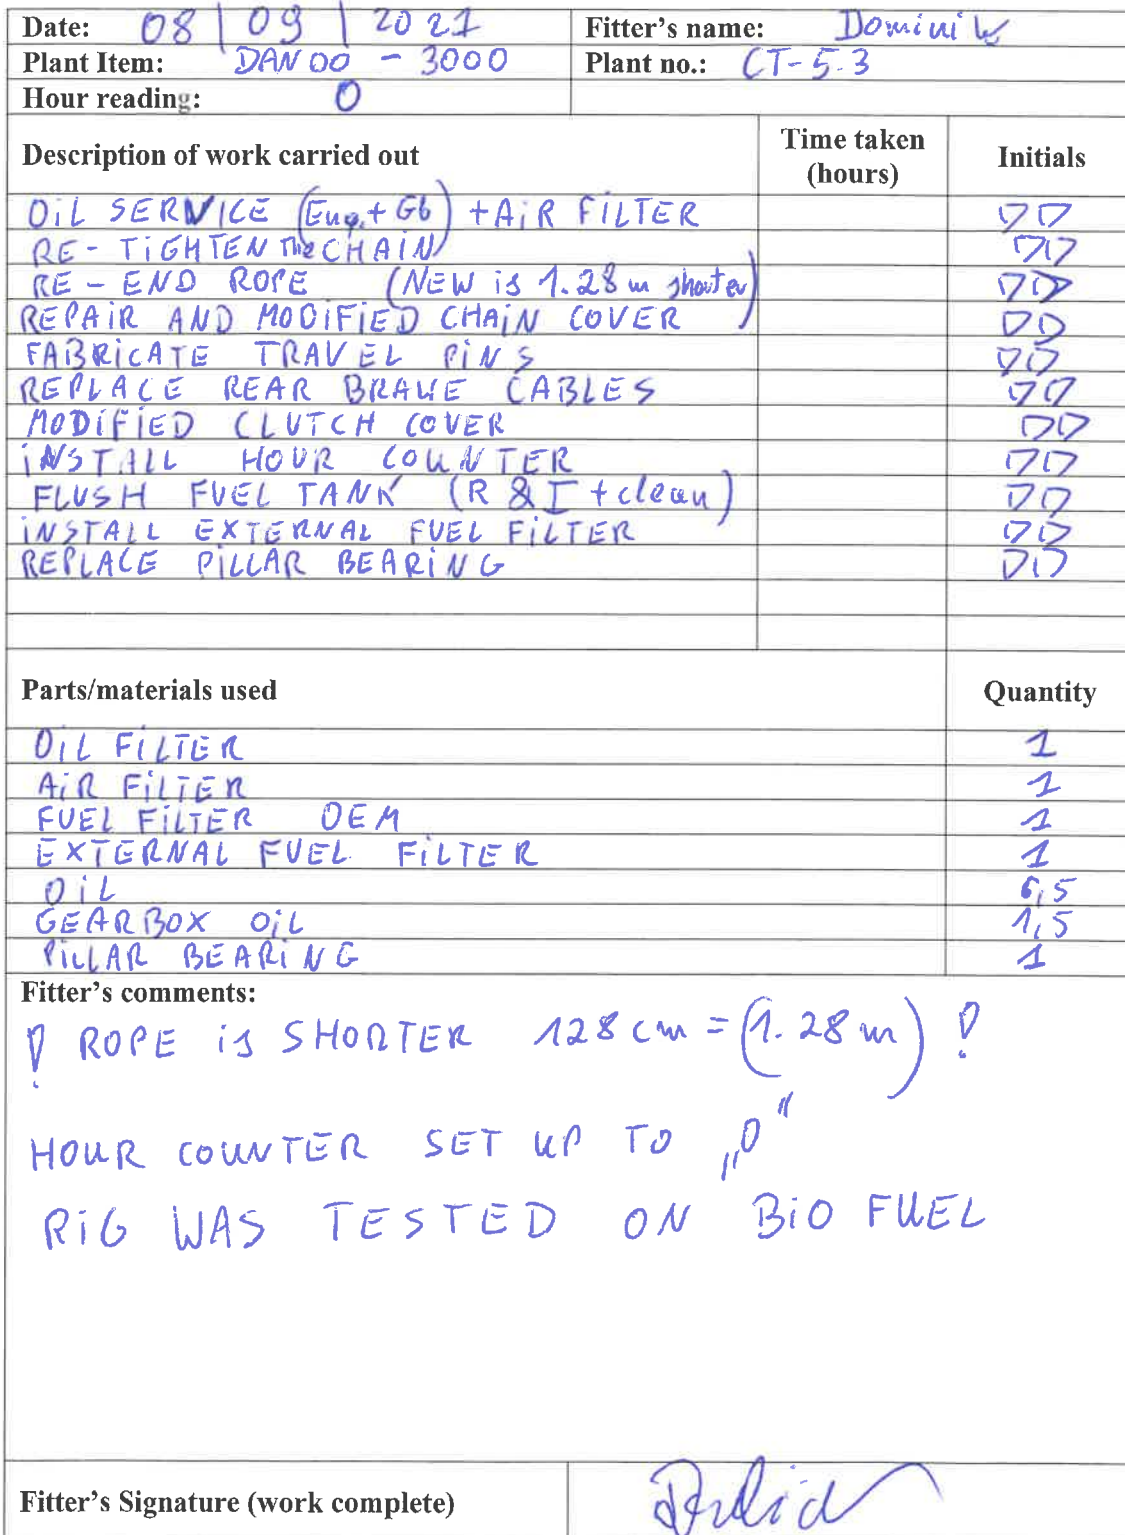 Date: 08 | 09 | 2021 Fitter's name: Dominik
Plant Item: DANDO - 3000 Plant no.: CT-5.3
Hour reading: 0
Description of work carried out Time taken (hours) Initials
OiL SERVICE (Eng.+ Gb) + AiR FiLTER DD
RE - TiGHTEN The CHAIN DD
RE - END ROPE (NEW is 1.28 m shorter) DD
REPAiR AND MODiFiED CHAiN COVER DD
FABRiCATE TRAVEL PiNS DD
REPLACE REAR BRAKE CABLES DD
MODiFiED CLUTCH COVER DD
iNSTALL HOUR COUNTER DD
FLUSH FUEL TANK (R & I + clean) DD
iNSTALL EXTERNAL FUEL FiLTER DD
REPLACE PiLLAR BEARiNG DD
Parts/materials used Quantity
OiL FiLTER 1
AiR FiLTER 1
FUEL FiLTER OEM 1
EXTERNAL FUEL FiLTER 1
OiL 6,5
GEARBOX OiL 1,5
PiLLAR BEARiNG 1
Fitter's comments:
! ROPE is SHORTER 128 cm = (1.28 m) !
HOUR COUNTER SET UP TO „0"
RiG WAS TESTED ON BiO FUEL
Fitter's Signature (work complete)